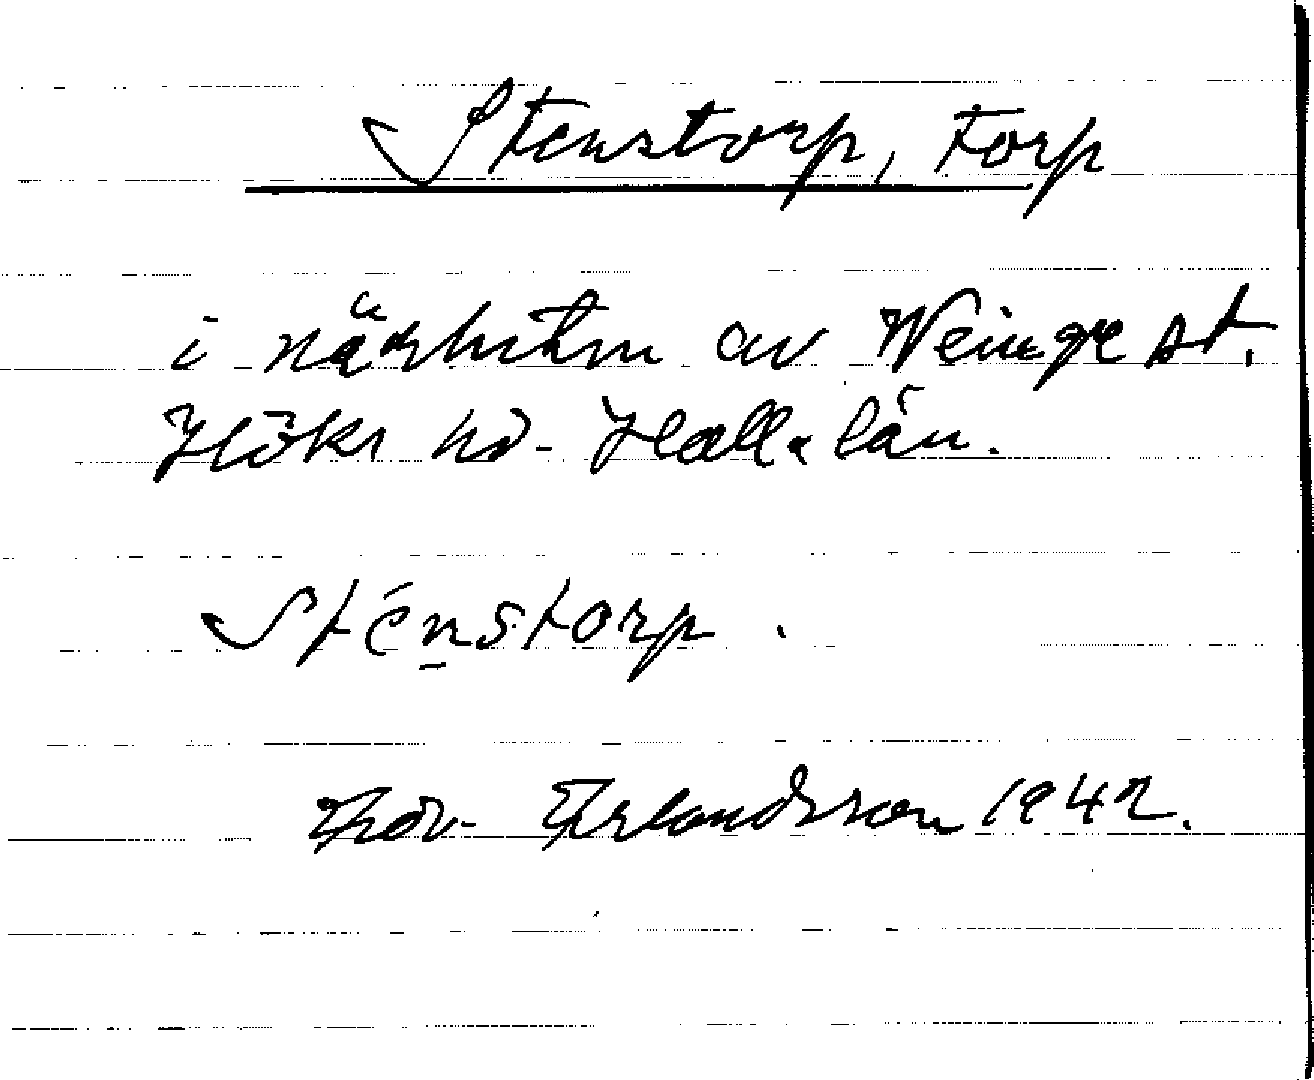 Stenstorp, torp
i närheten av Weinge st.
Höks hd. Hall. län.
Sténstorp.
Erlandsson 1942.